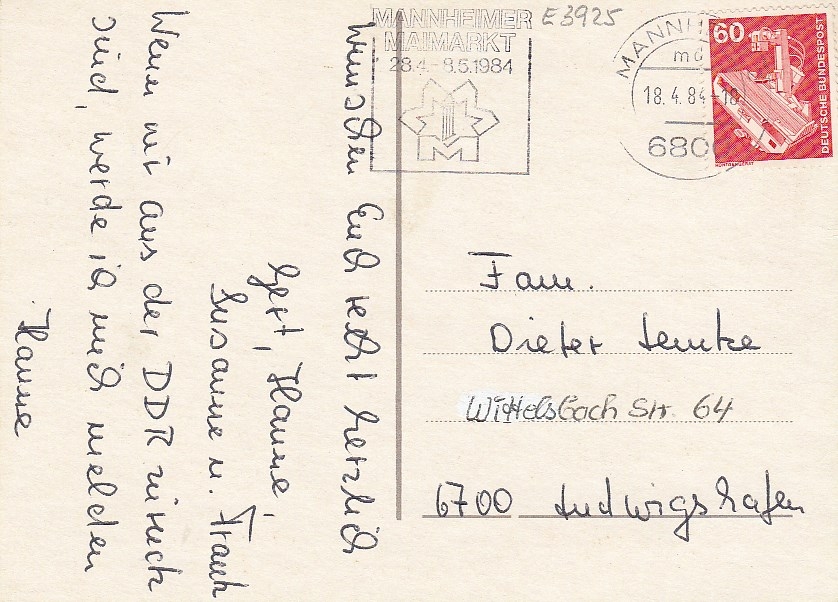 wünschen Euch recht herzlich
Gert, Hanne,
Susanne u. Frank
Wenn wir aus der DDR zurück
sind, werde ich mich melden
Hanne
MANNHEIMER
MAIMARKT
28.4.-8.5.1984
M
E3925
MANNH
18.4.84-18
680
60
DEUTSCHE BUNDESPOST
Fam.
Dieter Lemke
Wittelsbach Str. 64
6700 Ludwigshafen